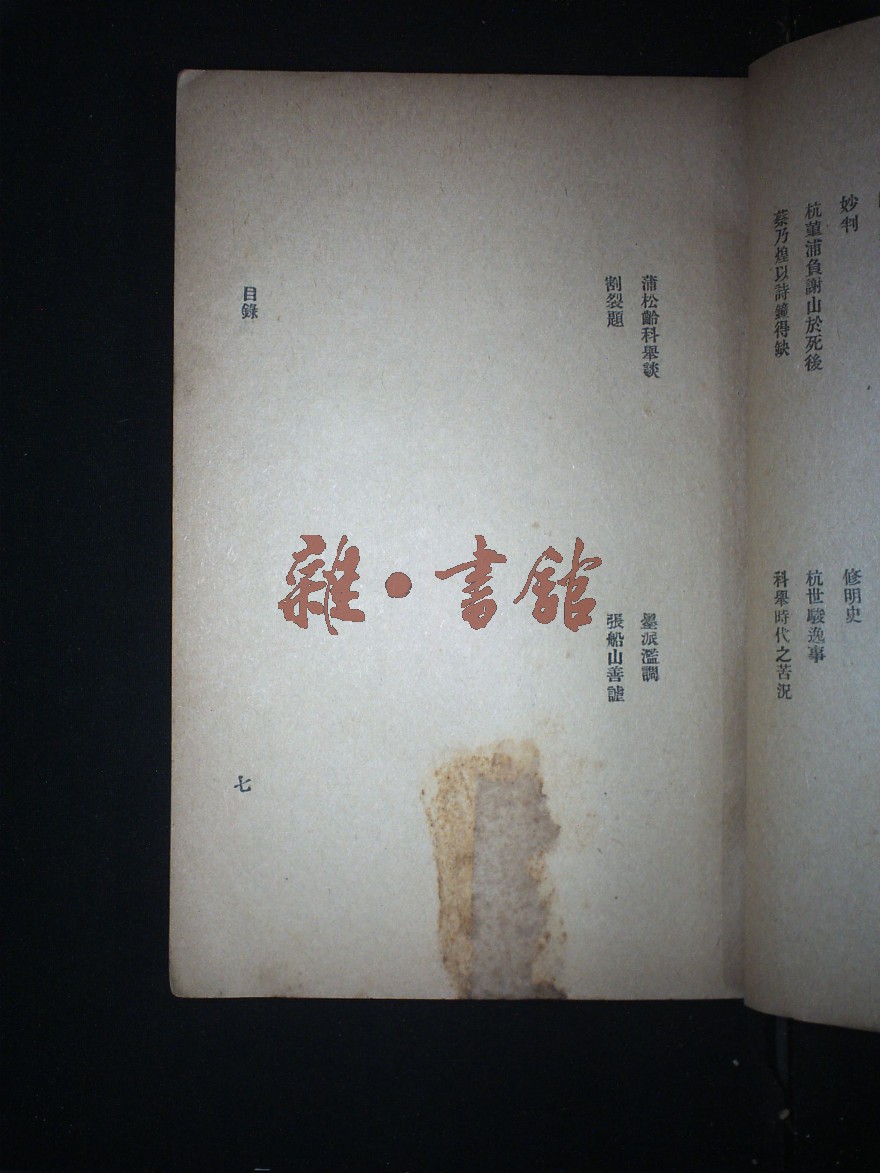 妙判
修明史
杭菫浦負謝山於死後
杭世駿逸事
蔡乃煌以詩鐘得缺
科舉時代之苦況
蒲松齡科舉談
墨派濫調
割裂題
張船山善謔
目錄
七
雜·書館